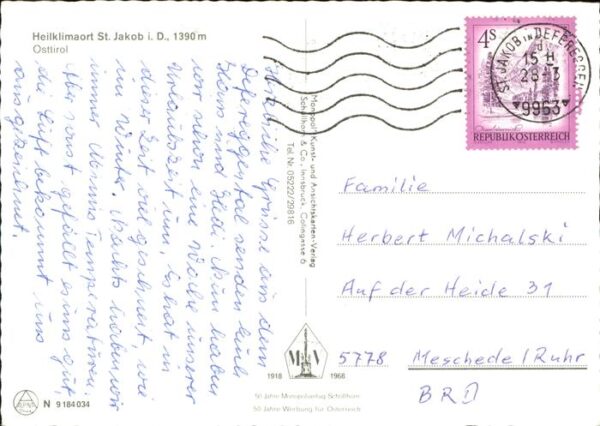 Heilklimaort St. Jakob i. D., 1390 m
Osttirol
Herzliche Grüsse aus dem
Defereggental senden Euch
Hans und Hedi. Nun haben
wir schon eine Woche unserer
Urlaubszeit um. Es hat in
dieser Zeit viel geschneit, wie
im Winter. Nachts haben wir
immer Minus Temperaturen.
Aber sonst gefällt es uns gut,
die Luft bekommt uns
ausgezeichnet.
N 9184034
Monopol Kunst- und Ansichtskarten-Verlag
Schöllhorn & Co., Innsbruck, Colingasse 6
Tel. Nr. 05222/29816
M V
1918 1968
50 Jahre Monopolverlag Schöllhorn
50 Jahre Werbung für Österreich
4 S
REPUBLIK ÖSTERREICH
ST. JAKOB IN DEFEREGGEN
9963
Familie
Herbert Michalski
Auf der Heide 31
5778 Meschede/Ruhr
BRD